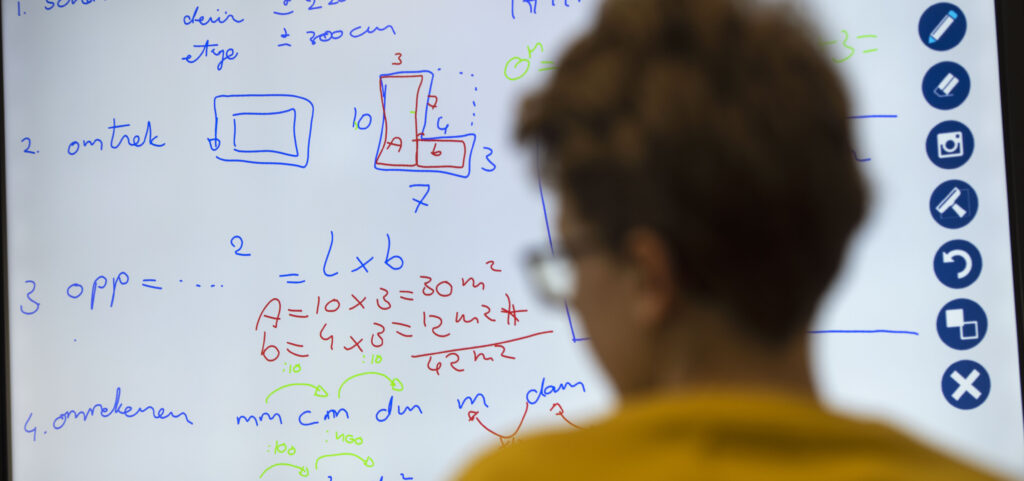 deur ±
etage ± 300cm
2. omtrek
3
10
7
4
A
b
3
7
3 opp = ....² = l x b
A = 10 x 3 = 30 m²
b = 4 x 3 = 12 m² +
42 m²
:10 :10
4. omrekenen mm cm dm m dam
:100 :100